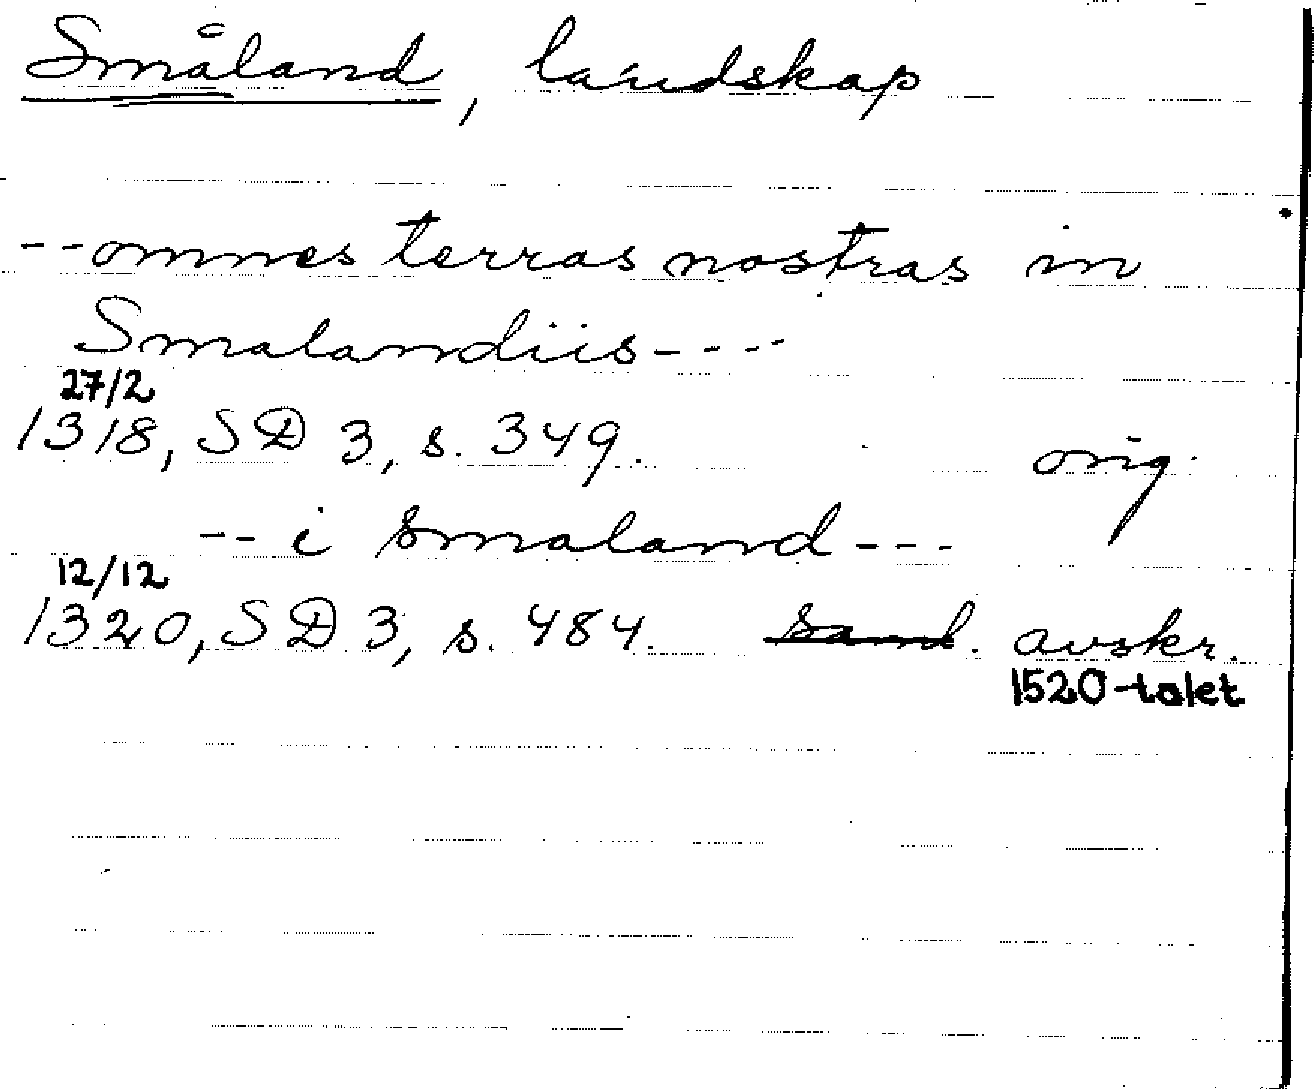 Småland, landskap
--omnes terras nostras in
Smalandiis----
27/2
1318, SD 3, s. 349. orig.
--i smaland---
12/12
1320, SD 3, s. 484. samt. avskr.
1520-talet